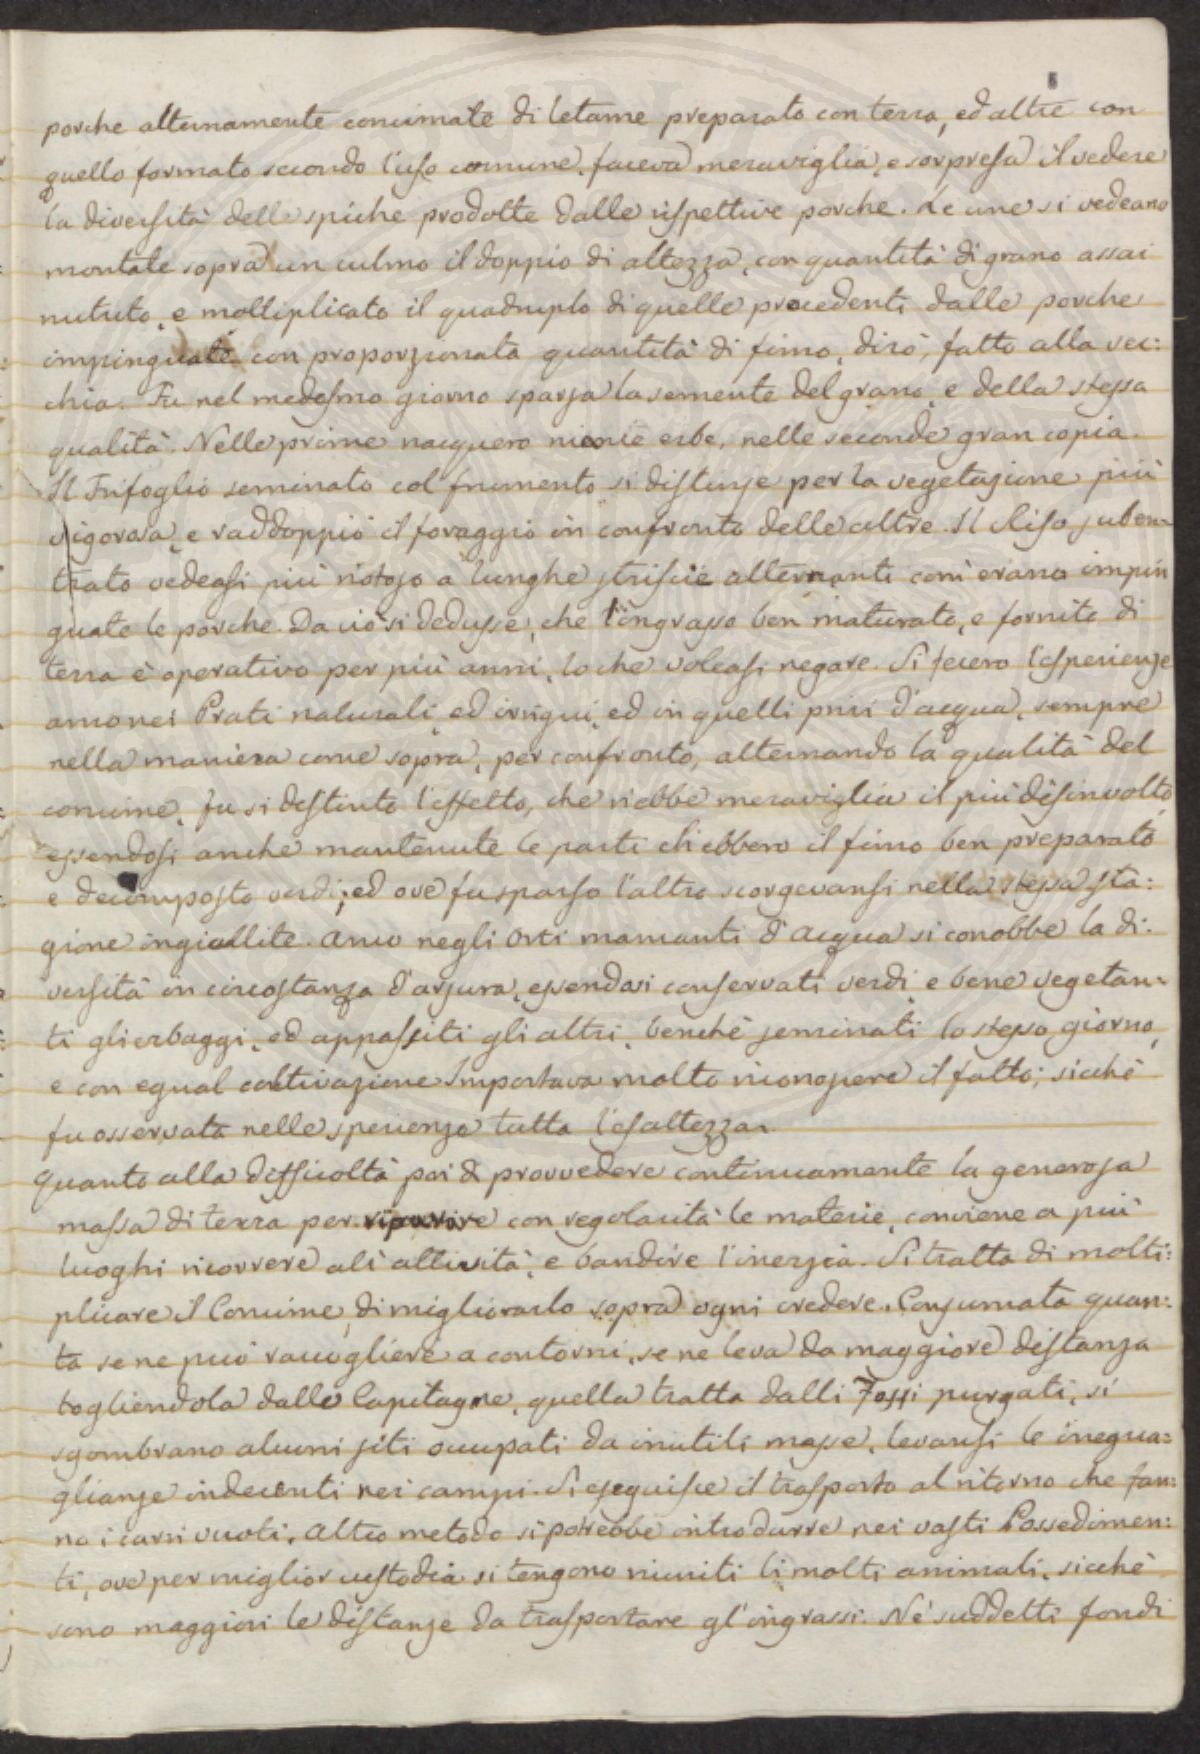 porche alternamente concimate di letame preparato con terra, ed altre con
quello formato secondo l'uso comune, faceva meraviglia, e sorpresa il vedere
la diversità delle spiche prodotte dalle rispettive porche. Le une si vedeano
montate sopra un culmo il doppio di altezza, con quantità di grano assai
nutrito, e moltiplicato il quadruplo di quelle procedenti dalle porche
impinguate con proporzionata quantità di fimo, dirò, fatto alla vec:
chia. Fu nel medesmo giorno sparsa la semente del grano, e della stessa
qualità. Nelle prime nacquero niente erbe, nelle seconde gran copia.
Il Trifoglio seminato col frumento si distinse per la vegetazione più
vigorosa, e raddoppiò il foraggio in confronto delle altre. Il Riso suben:
trato vedeasi più rigoso a lunghe striscie alternanti com'erano impin
guate le porche. Da ciò si dedusse, che l'ingrasso ben maturato, e fornito di
terra è operativo per più anni, lo che voleasi negare. Si fecero l'esperienze
anco nei Prati naturali, ed irrigui, ed in quelli privi d'acqua, sempre
nella maniera come sopra, per confronto, alternando la qualità del
concime, fu si distinto l'effetto, che n'ebbe meraviglia il più disinvolto
essendosi anche mantenute le parti ch'ebbero il fimo ben preparato
e decomposto verdi; ed ove fu sparso l'altro scorgevansi nella stessa sta:
gione ingiallite. Anco negli Orti mancanti d'acqua si conobbe la di:
versità in circostanza d'arsura, essendosi conservati verdi, e bene vegetan:
ti gli erbaggi, ed appassiti gli altri, benchè seminati lo stesso giorno,
e con egual coltivazione. Importava molto riconoscere il fatto; sicchè
fu osservata nelle sperienze tutta l'esaltezza.
Quanto alla difficoltà poi di provvedere continuamente la generosa
massa di terra per ricoprire con regolarità le materie, conviene a più
luoghi ricorrere all'attività, e bandire l'inerzia. Si tratta di molti:
plicare il Concime, di migliorarlo sopra ogni credere. Consumata quan:
ta se ne può raccogliere a contorni, se ne leva da maggiore distanza
togliendola dalle Capitagne, quella tratta dalli Fossi purgati, si
sgombrano alcuni siti occupati da inutili masse, levansi le inegua:
glianze indecenti nei campi. Si eseguisce il trasporto al ritorno che fan:
no i carri vuoti. Altro metodo si potrebbe introdurre nei vasti Possedimen:
ti, ove per miglior custodia si tengono riuniti li molti animali, sicchè
sono maggiori le distanze da trasportare gl'ingrassi. Ne' suddetti fondi